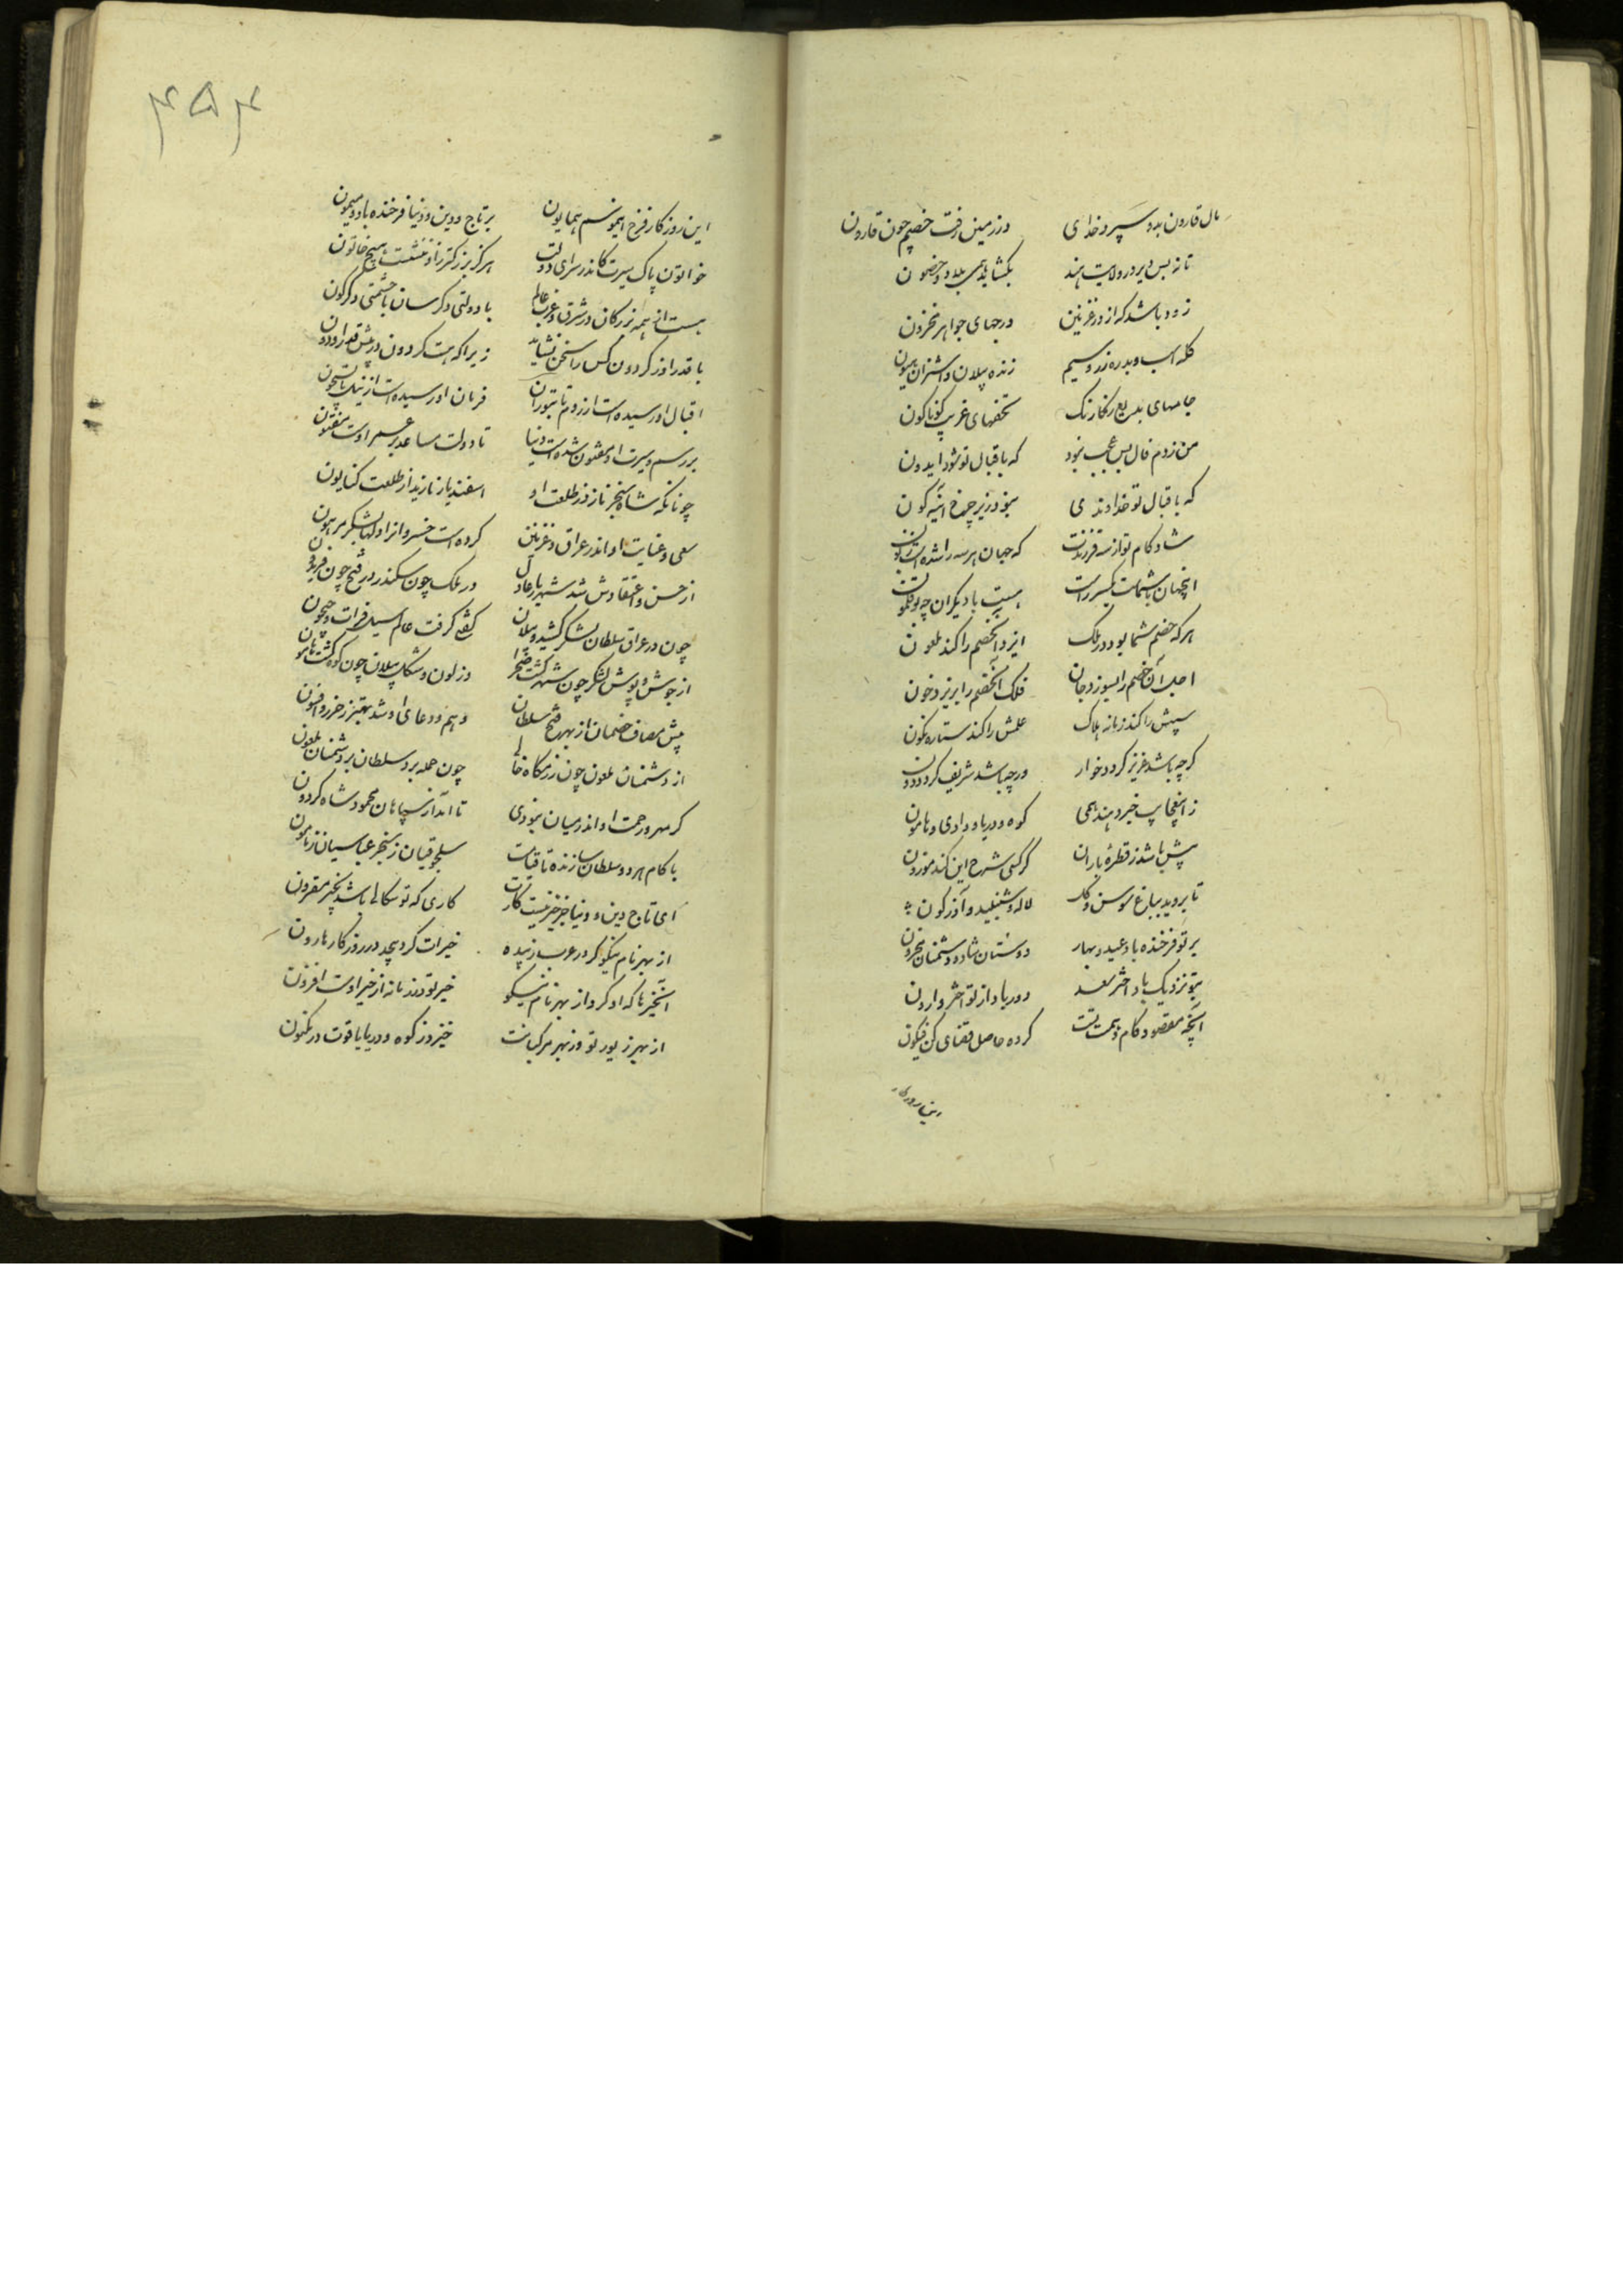 مال قارون بدو سپرد خدای در زمین رفت خصم چون قارون
تا نه بس دیر در ولایت هند بگشاید بسی بلاد و حصون
زود باشد که از در غزنین درجهای جواهر مخزون
گله اسب و بدره زر و سیم زنده پیلان و اشتران هیون
جامهای بدیع رنگارنگ تحفهای غریب گوناگون
من زدم فال بس عجب نبود که باقبال تو شود ایدون
که باقبال تو خداوندی نبود زیر چرخ آینه گون
شاد کام تو از سه فرزندت که جهان هر سه را شده است
اینجهان با شماست یکسر راست هست با دیگران چو بوقلمون
هر که خصم شما بود در ملک ایزد آنخصم را کند ملعون
اجل آن خصم را بسوزد جان فلک آنخصم را بریزد خون
سپش را کند زمانه هلاک علمش را کند ستاره نگون
گر چه باشد عزیز گردد خوار ور چه باشد شریف گردد دون
ز آنچه خیزد همی کوه و دریا و وادی و هامون
بیش باشد ز قطرهٔ باران گر کسی شرح این کند موزون
تا بروید بباغ سوسن و گل لاله و شنبلید و آذرگون
بر تو فرخنده باد عید و بهار دوستان شاد و دشمنان محزون
بتو نزدیک باد اختر سعد دور باد از تو اختر وارون
آنچه مقصود کام و همت تست کرده حاصل قضای کن فیکون
این روزگار
۴۵۴
این روزگار فرخ این موسم همایون بر تاج دین و دنیا فرخنده باد و میمون
خواتون پاک سیرت کاندر سرای دولت هرگز بزرگتر زو ننشست هیچ خاتون
هست از همه بزرگان در شرق و غرب عالم با دولتی دگرسان با حشمتی دگرگون
با قدر او ز گردون کس را سخن نشاید زیرا که هست گردون در پیش قدر او دون
اقبال او رسیده است از روم تا بتوران فرمان او رسیده است از نیل تا بسیحون
بر رسم و سیرت او مفتون شده است دنیا تا دولت مساعد بر عمر اوست مفتون
چونانکه شاه سنجر نازد ز طلعت او اسفندیار نازید از طلعت کتایون
سعی و عنایت او اندر عراق و غزنین کرده است خسروانرا دلها بشکر مرهون
از حسن و اعتقادش شد شهریار عادل در ملک چون سکندر در فتح چون فریدون
چون در عراق سلطان لشکر کشید و پیلان گفتی گرفت عالم سیل فرات و جیحون
از جوش و پوش لشکر چون شهر گشت صحرا وز لون و شکل پیلان چون کوه گشت هامون
پیش مصاف خصمان از بهر فتح سلطان وهم و دعای او شد بهتر ز حرز و افسون
از دشمنان ملعون چون رزمگاه خالی چون حمله برد سلطان بر دشمنان ملعون
گر مهر و رحمت او اندر میان نبودی تا اندر سپاهان محمود شاه گردون
با کام هر دو سلطان سازنده تا قیامت سلجوقیان ز سنجر عباسیان ز مامون
ای تاج دین و دنیا جز خیر نیست کارت کاری که تو سگالی باشد بخیر مقرون
از بهر نام نیکو کرد در عرب زبیده خیرات گرد بیحد در روزگار هارون
آن خیرها که او کرد از بهر نام نیکو خیر تو در زمانه از خیر اوست افزون
از بهر زیور تو وز بهر مرکبانت خیزد ز کوه و دریا یاقوت در مکنون